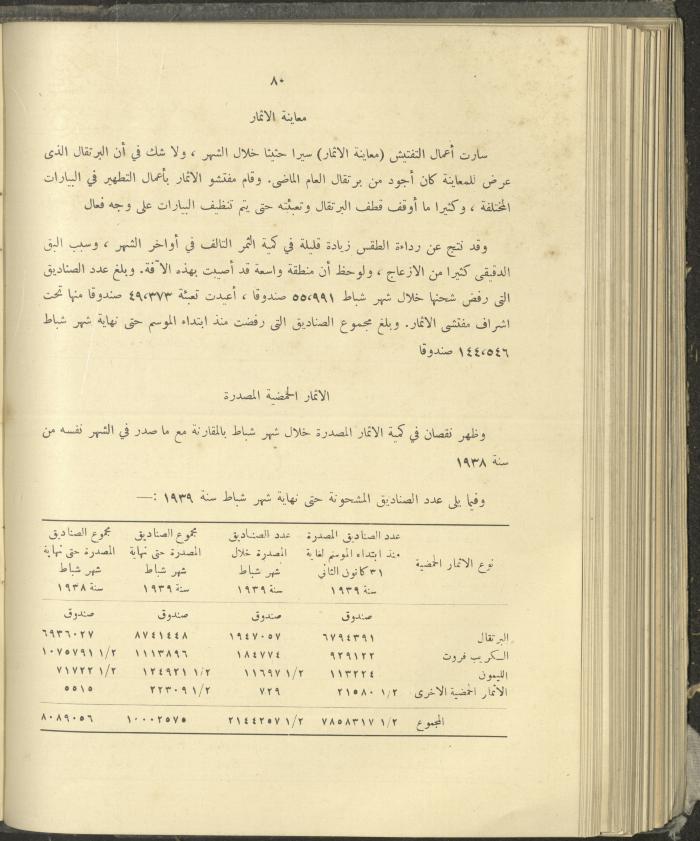 ٨٠
معاينة الاثمار
سارت أعمال التفتيش (معاينة الاثمار) سيرا حثيثا خلال الشهر ، ولا شك في أن البرتقال الذى
عرض للمعاينة كان أجود من برتقال العام الماضى. وقام مفتشو الاثمار بأعمال التطهير في البيارات
المختلفة ، وكثيرا ما أوقف قطف البرتقال وتعبئته حتى يتم تنظيف البيارات على وجه فعال
وقد نتج عن رداءة الطقس زيادة قليلة في كمية الثمر التالف في أواخر الشهر ، وسبب البق
الدقيقى كثيرا من الازعاج ، ولوحظ أن منطقة واسعة قد أصيبت بهذه الآفة. وبلغ عدد الصناديق
التى رفض شحنها خلال شهر شباط ٥٥،٩٩١ صندوقا ، أعيدت تعبئة ٤٩،٣٧٣ صندوقا منها تحت
اشراف مفتشى الاثمار. وبلغ مجموع الصناديق التى رفضت منذ ابتداء الموسم حتى نهاية شهر شباط
١٤٤،٥٤٦ صندوقا
الاثمار الحمضية المصدرة
وظهر نقصان في كمية الاثمار المصدرة خلال شهر شباط بالمقارنة مع ما صدر في الشهر نفسه من
سنة ١٩٣٨
وفيما يلى عدد الصناديق المشحونة حتى نهاية شهر شباط سنة ١٩٣٩ :—
نوع الاثمار الحمضية عدد الصناديق المصدرة منذ ابتداء الموسم لغاية ٣١ كانون الثاني سنة ١٩٣٩ عدد الصناديق المصدرة خلال شهر شباط سنة ١٩٣٩ مجموع الصناديق المصدرة حتى نهاية شهر شباط سنة ١٩٣٩ مجموع الصناديق المصدرة حتى نهاية شهر شباط سنة ١٩٣٨
صندوق صندوق صندوق صندوق
البرتقال ٦٧٩٤٣٩١ ١٩٤٧٠٥٧ ٨٧٤١٤٤٨ ٦٩٣٦٠٢٧
الكريب فروت ٩٢٩١٢٢ ١٨٤٧٧٤ ١١١٣٨٩٦ ١٠٧٥٧٩١ ١/٢
الليمون ١١٣٢٢٤ ١١٦٩٧ ١/٢ ١٢٤٩٢١ ١/٢ ٧١٧٢٢ ١/٢
الاثمار الحمضية الاخرى ٢١٥٨٠ ١/٢ ٧٢٩ ٢٢٣٠٩ ١/٢ ٥٥١٥
المجموع ٧٨٥٨٣١٧ ١/٢ ٢١٤٤٢٥٧ ١/٢ ١٠٠٠٢٥٧٥ ٨٠٨٩٠٥٦